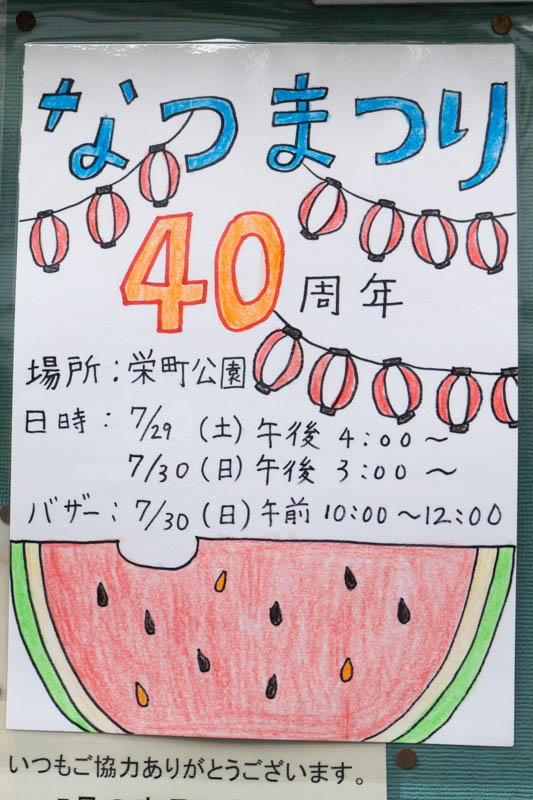 なつまつり
40周年
場所：栄町公園
日時：7/29（土）午後 4：00～
7/30（日）午後 3：00～
バザー：7/30（日）午前 10：00～12：00
いつもご協力ありがとうございます。